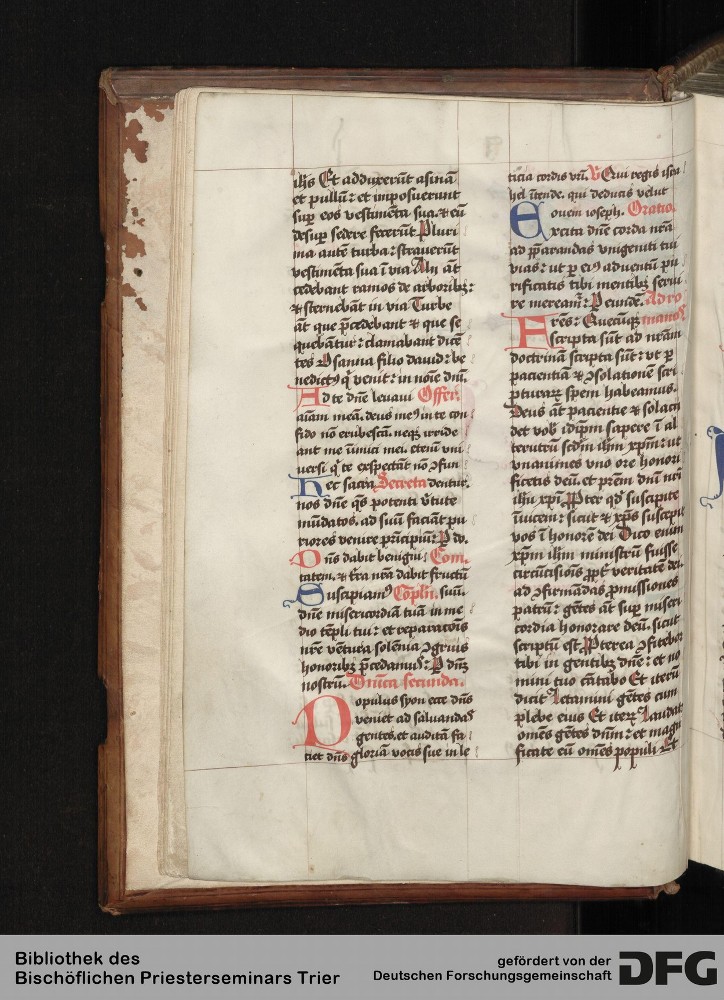 illis Et adduxerūt asinā
et pullū: et imposuerunt
sup eos vestimēta sua. et eū
desup sedere fecerūt Pluri
ma autē turba: strauerūt
vestimēta sua ī via Alij āt
cedebant ramos de arboribꝫ:
et sternebāt in via Turbe
āt que p̄cedebant et que se
quebātur: clamabant dicē
tes Osanna filio dauid: be
nedictꝰ q̇ venit: in noīe dnī.
Ad te dn̄e leuaui Offer.
aīam meā. deus meꝰ in te con
fido nō erubescā. neqꝫ irride
ant me inimici mei. etenī vni
uersi q̇ te exspectāt nō ꝯfun
Hec sacra Secreta dentur.
nos dn̄e q̄s potenti v̄tute
mūdatos. ad suū faciāt pu
riores venire p̄ncipiū: P do.
Dn̄s dabit benigni Com.
tatem. et t̄ra nr̄a dabit fructū
Suscipiamꝰ Cōpln̄. suū.
dn̄e misericordiā tuā in me
dio tēpli tui: et reparacōis
nr̄e vētura solēnia ꝯgruis
honoribꝫ p̄cedamꝰ: P dn̄ꝫ
nostrū. Dnīca secunda.
Populus syon ecce dn̄s
veniet ad saluandas
gentes. et auditā fa
ciet dn̄s gloriā vocis sue in le
ticia cordis vrī. V Qui regis isra
hel ītende. qui deducis velut
ouem ioseph. Oratio.
Excita dn̄e corda nr̄a
ad p̄parandas vnigeniti tui
vias: ut p eiꝰ aduentū pu
rificatis tibi mentibꝫ serui
re mereamr̄: P eundē. Ad ro
Fres: Quecūqꝫ manos
scripta sūt ad nr̄am
doctrinā scripta sūt: vt p
pacientiā et ꝯsolationē scri
pturaꝝ spem habeamus.
Deus āt pacientie et solacij
det vob̄ idip̄m sapere ī al
terutrū scdm̄ ihm̄ xp̄m: ut
vnanimes vno ore honori
ficetis deū. et prēm dnī nrī
ihū xp̄i Ꝓpter qd̄ suscipite
īuicem: sicut et xp̄s suscepit
vos ī honorē dei Dico enim
xp̄m ihm̄ ministrū fuisse
circūcisiōis ꝓpt̄ veritatē dei.
ad ꝯfirmādas ꝓmissiones
patrū: gētes āt sup miseri
cordia honorare deū. sicut
scriptū est. Ꝓpterea ꝯfitebor
tibi in gentibꝫ dn̄e: et no
mini tuo cātabo Et iterū
dicit Letamini gētes cum
plebe eius Et iteꝝ Laudate
omēs gētes dnm̄: et magni
ficate eū omēs populi Et
Bibliothek des
Bischöflichen Priesterseminars Trier
gefördert von der
Deutschen Forschungsgemeinschaft
DFG